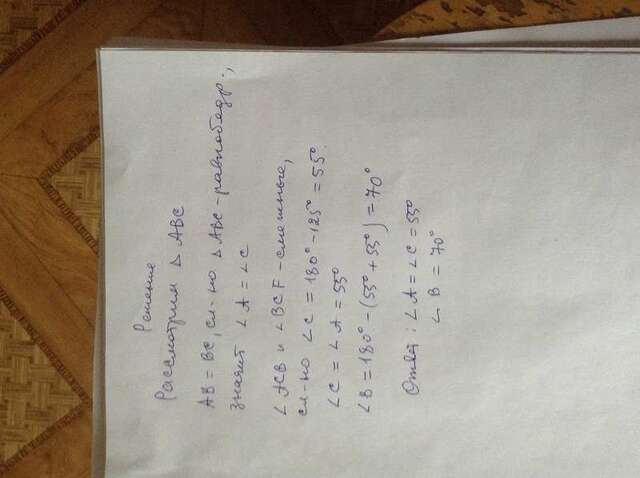 Решение
Рассмотрим △ ABC
AB = BC, сл-но △ ABC - равнобедр.,
значит ∠A = ∠C
∠ACB и ∠BCF - смежные,
сл-но ∠C = 180° - 125° = 55°.
∠C = ∠A = 55°
∠B = 180° - (55° + 55°) = 70°
Ответ: ∠A = ∠C = 55°
∠B = 70°